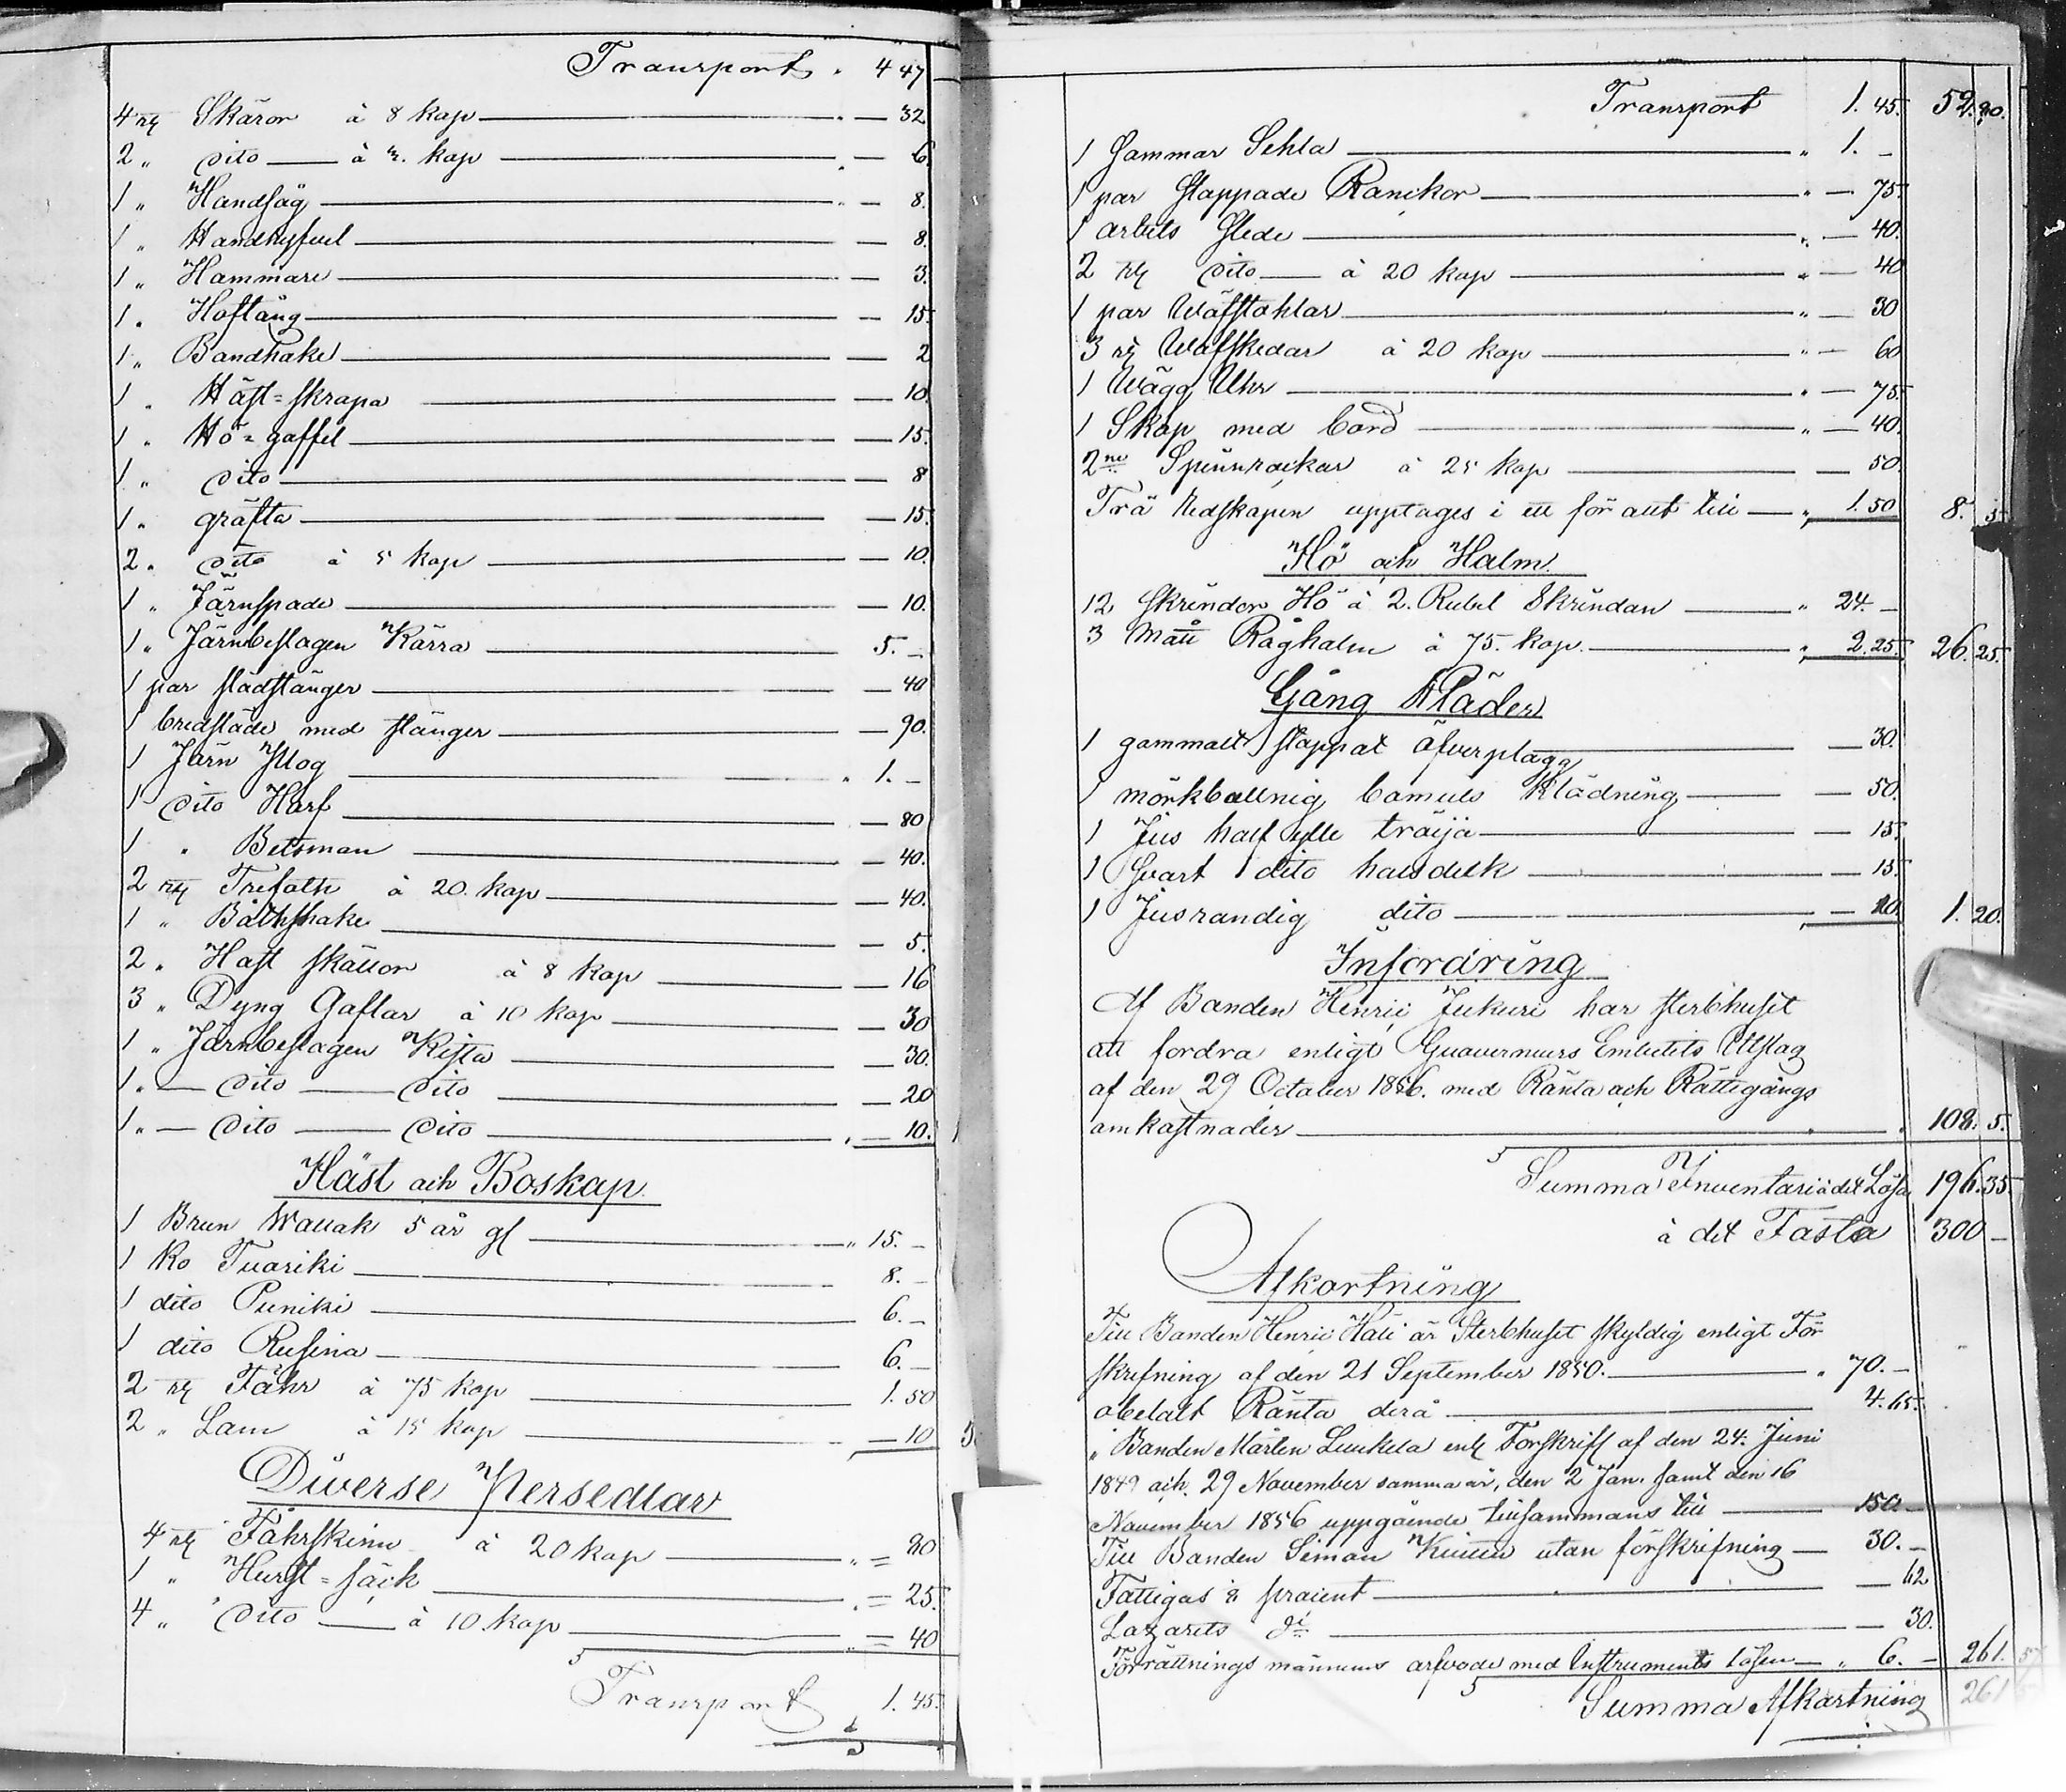 Transport " 4 47
4 st Skäror à 8 kop — 32
2 " dito — à 3. kop — 6.
1 " Handsåg — 8.
1 " Handhyfvel — 8.
1 " Hammare — 3.
1 " Hoftång — 15.
1 " Bandhake — 2
1 " Häst=skrapa — 10.
1 " Hö=gaffel — 15.
1 " dito — 8
1 " gräfta — 15.
2 " dito à 5 kop — 10.
1 " Järnspade — 10.
1 " Järnbeslagen Kärra — 5. –
1 par slädstänger — 40
1 bredsläde med stänger — 90.
1 Järn Plog — " 1. –
1 dito Harf — 80
1 " Betsman — 40.
2 st Trefoth à 20. kop — 40.
1 " Båthshake — 5.
2 " Häst skällor à 8 kop — 16
3 " Dyng Gaflar à 10 kop — 30
1 " Järnbeslagen Kista — 30.
1 " — dito — dito — 20
1 " — dito — dito — 10.
Häst och Boskap.
1 Brun Wallak 5 år gl — " 15. –
1 Ko Tuariki — 8. –
1 dito Puniki — 6. –
1 dito Rusina — 6. –
2 st Fåhr à 75 kop — 1. 50
2 " Lam à 15 kop — 10
Diverse Persedlar
4 st Fåhrskinn à 20 kop — " = 80
1 " Hurst=säck — " = 25.
4 " dito — à 10 kop — " = 40
Transport 1. 45.
Transport 1. 45. 52. 80.
1 Gammar Sehla — " 1. –
1 par slappade Ranckor — " — 75.
1 arbets slede — " — 40.
2 st dito — à 20 kop — " — 40
1 par Wäfstohlar — " — 30
3 st Wäfskedar à 20 kop — " — 60
1 Wägg Uhr — " — 75.
1 Skåp med bord — " — 40.
2ne Spinnrockar à 25 kop — 50.
Trä Redskapen upptages i ett för allt till — " 1. 50 8. 5
Hö och Halm.
12 skrindor Hö à 2. Rubel Skrindan — " 24. –
3 Mått Råghalm à 75. kop. — " 2. 25. 26. 25.
Gång Kläder
1 gammalt slappat öfverplagg — 30.
1 mörkballnig bomuls Klädning — 50.
1 ljus half ylle tröija — 15.
1 Svart dito halsduk — 15.
1 ljusrandig dito — 10. 1. 20.
Infordring
Af Bonden Henric Jukuri har sterbhuset
att fordra enligt Guverneurs Embetets Utslag
af den 29 October 1856. med Ränta och Rättegångs
omkostnader — 108. 5.
Summa Inventari ä det Lösa 196. 35.
à det Fasta 300 –
Afkortning
Till Bonden Henric Hali är Sterbhuset skyldig enligt För
skrifning af den 21 September 1850. — " 70. –
obetalt Ränta derå — 4. 65.
" Bonden Mårten Luukela enl Förskrift af den 24. Juni
1849 och 29 November samma år, den 2 Jan. samt den 16
November 1856 uppgående tillsammans till — 150. –
Till Bonden Simon utan förskrifning — 30. –
Fattigas procent — 62
Lazarets do — 30.
Förrättnings männens arfvode med Instruments lösen — " 6. – 261. 57
Summa Afkortning 261